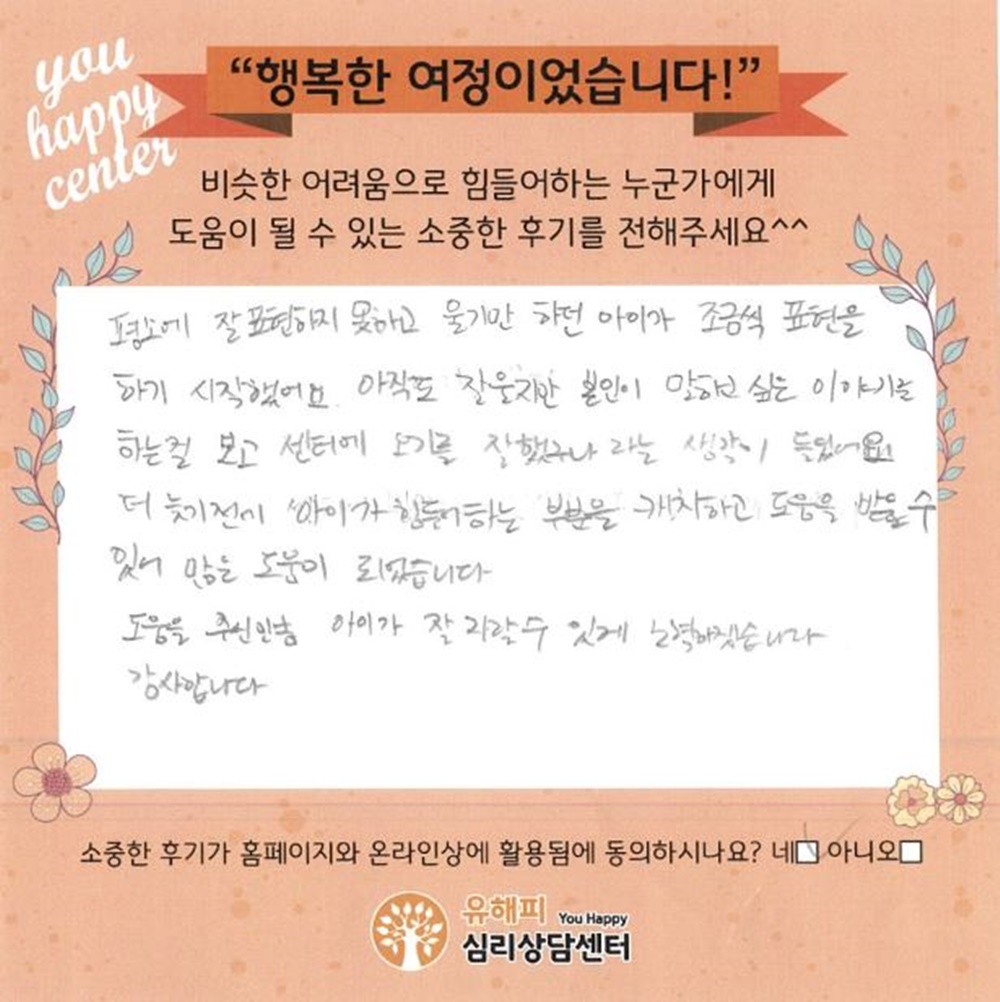 you
happy
center
“행복한 여정이었습니다!”
비슷한 어려움으로 힘들어하는 누군가에게
도움이 될 수 있는 소중한 후기를 전해주세요^^
평소에 잘 표현하지 못하고 울기만 하던 아이가 조금씩 표현을
하기 시작했어요 아직도 잘울지만 본인이 말하고 싶은 이야기는
하는걸 보고 센터에 오기를 잘했구나 라는 생각이 들었어요
더 늦기전에 아이가 힘들어하는 부분을 캐치하고 도움을 받을 수
있어 많은 도움이 되었습니다
도움을 주신만큼 아이가 잘 자랄수 있게 노력하겠습니다
감사합니다
소중한 후기가 홈페이지와 온라인상에 활용됨에 동의하시나요? 네 아니오
유해피 You Happy
심리상담센터